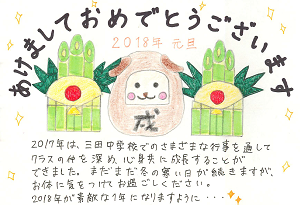 あけましておめでとうございます
2018年 元旦
戌
2017年は、三田中学校でのさまざまな行事を通して
クラスの仲を深め、心身共に成長することが
できました。まだまだ冬の寒い日が続きますが、
お体に気をつけてお過ごしください。
2018年が素敵な1年になりますように・・・